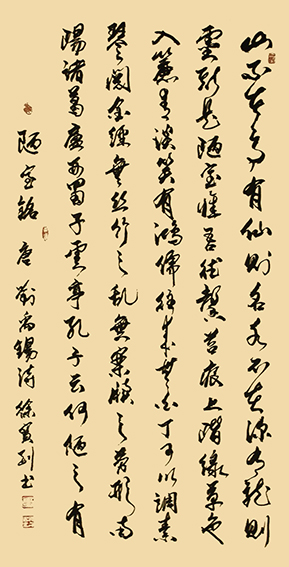 山不在高有仙則名水不在深有龍則
靈斯是陋室惟吾德馨苔痕上階緑草色
入簾青談笑有鴻儒往來無白丁可以調素
琴閲金經無絲竹之亂無案牘之勞形南
陽諸葛廬西蜀子雲亭孔子云何陋之有
陋室銘 唐 劉禹錫詩 徐書